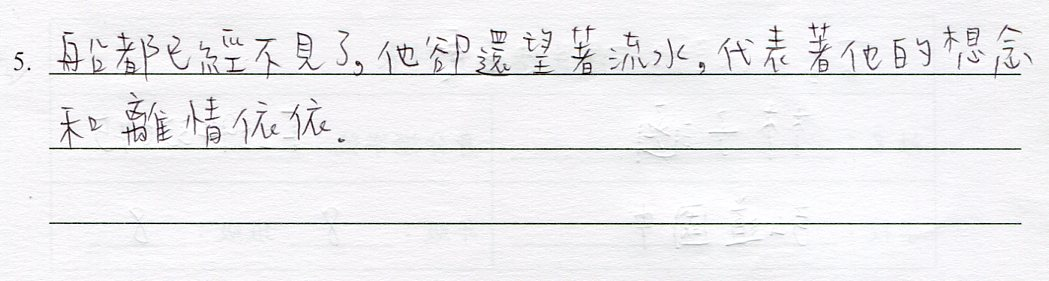 5. 船都已經不見了，他卻還望著流水，代表著他的想念
和離情依依.